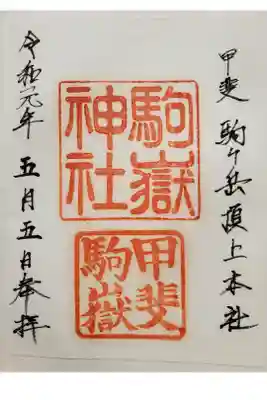 甲斐駒ヶ岳頂上本社
駒嶽
神社
甲斐
駒嶽
令和元年五月五日奉拝